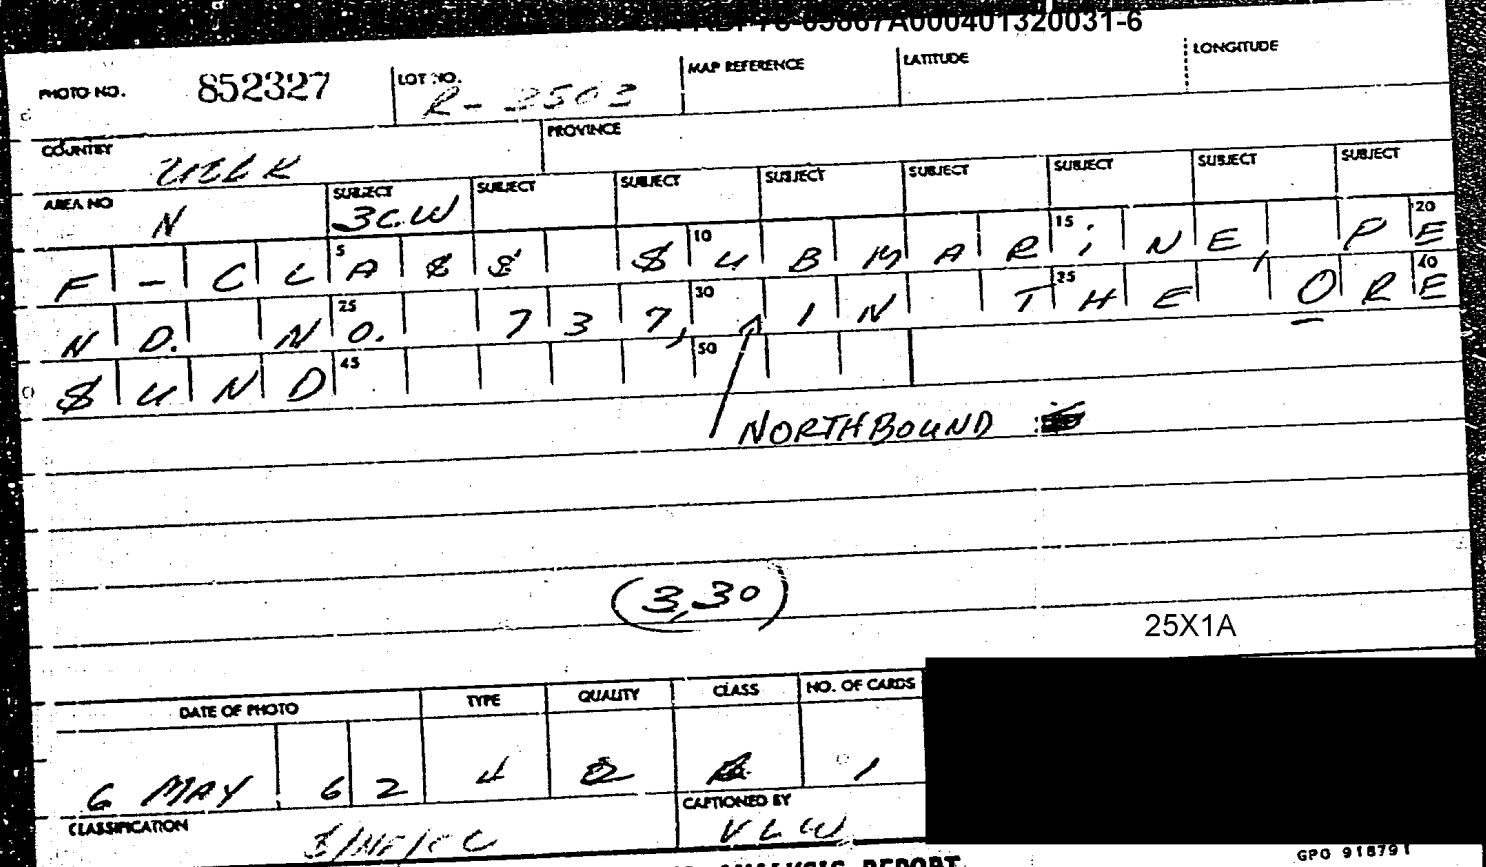 A000401320031-6
PHOTO NO. 852327 LOT NO. R- 2503 MAP REFERENCE LATITUDE LONGITUDE
COUNTRY PROVINCE
AREA NO N SUBJECT 3C.W SUBJECT SUBJECT SUBJECT SUBJECT SUBJECT SUBJECT SUBJECT
F-CLASS SUBMARINE, PE
5 10 15 20
ND. NO. 737, IN THE ORE
25 30 35 40
SUND
45 50
NORTHBOUND
(3,30)
25X1A
DATE OF PHOTO TYPE QUALITY CLASS NO. OF CARDS
6 MAY 62 4 2 1
CLASSIFICATION S/NF/CC CAPTIONED BY VLW
ANALYSIS REPORT
GPO 918791